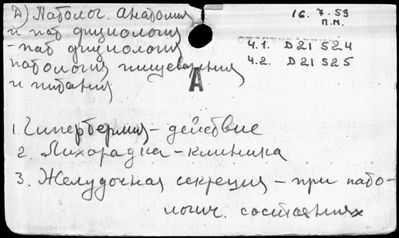 Д) Патолог. анатомия
и пат физиология
- пат физиология
патология пищеварения
и питания
16. 7. 59
П.М.
4.1. D21 S24
4.2. D21 S25
A
1. Гипертермия - действие
2. Лихорадка - клиника
3. Желудочная секреция - при пато-
логич. состояниях